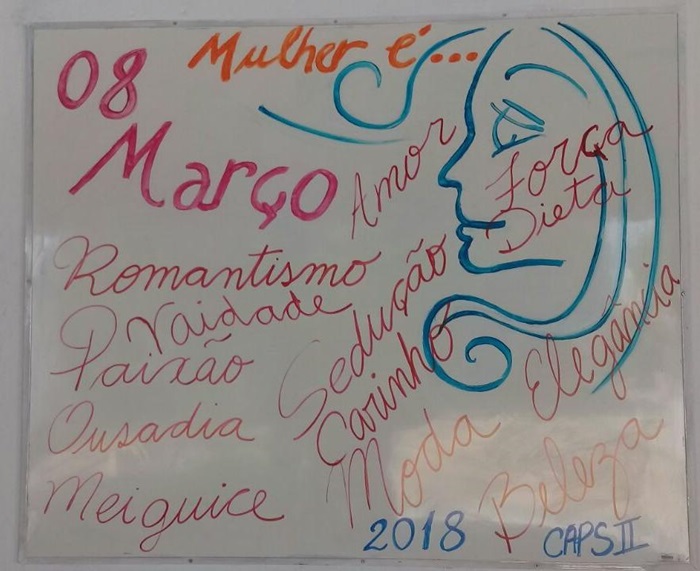 08 Mulher é...
Março
Amor
Força
Dieta
Romantismo
Vaidade
Paixão
Sedução
Carinho
Elegância
Ousadia
Moda
Beleza
Meiguice
2018 CAPS II